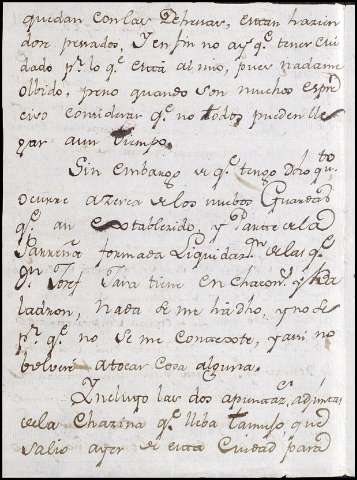 quedan con las Defensas, estan hazien
dose pesados, Y en fin no ay q.e tener cui
dado p.r lo q.e está al mio, pues nada me
olbido, pero quando son muchos es pre
ciso considerar q.e no todos pueden lle
gar a un tiempo.
Sin embargo de q.e tengo Dho q.to
ocurre azerca de los nuebos Guardas
q.e an establezido, y parte de la
Parreña formada Liquidaz.on de las q.e
D.n Josef Tara tiene en Chacon, y
ladron, Nada se me há dho, y no se
p.r q.e no se me contexte, y asi no
bolveré a tocar cosa alguna.
Yncluyo las dos apuntaz.s adjuntas
de la Chazina q.e lleba Tamuso que
salio ayer de esta Ciudad para